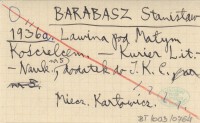 BARABASZ Stanisław
1936a. Lawina pod Małym
Kościelcem — Kurier Lit.-
- Nauk., dodatek do I.K.C., nr
Miecz. Karłowicz.